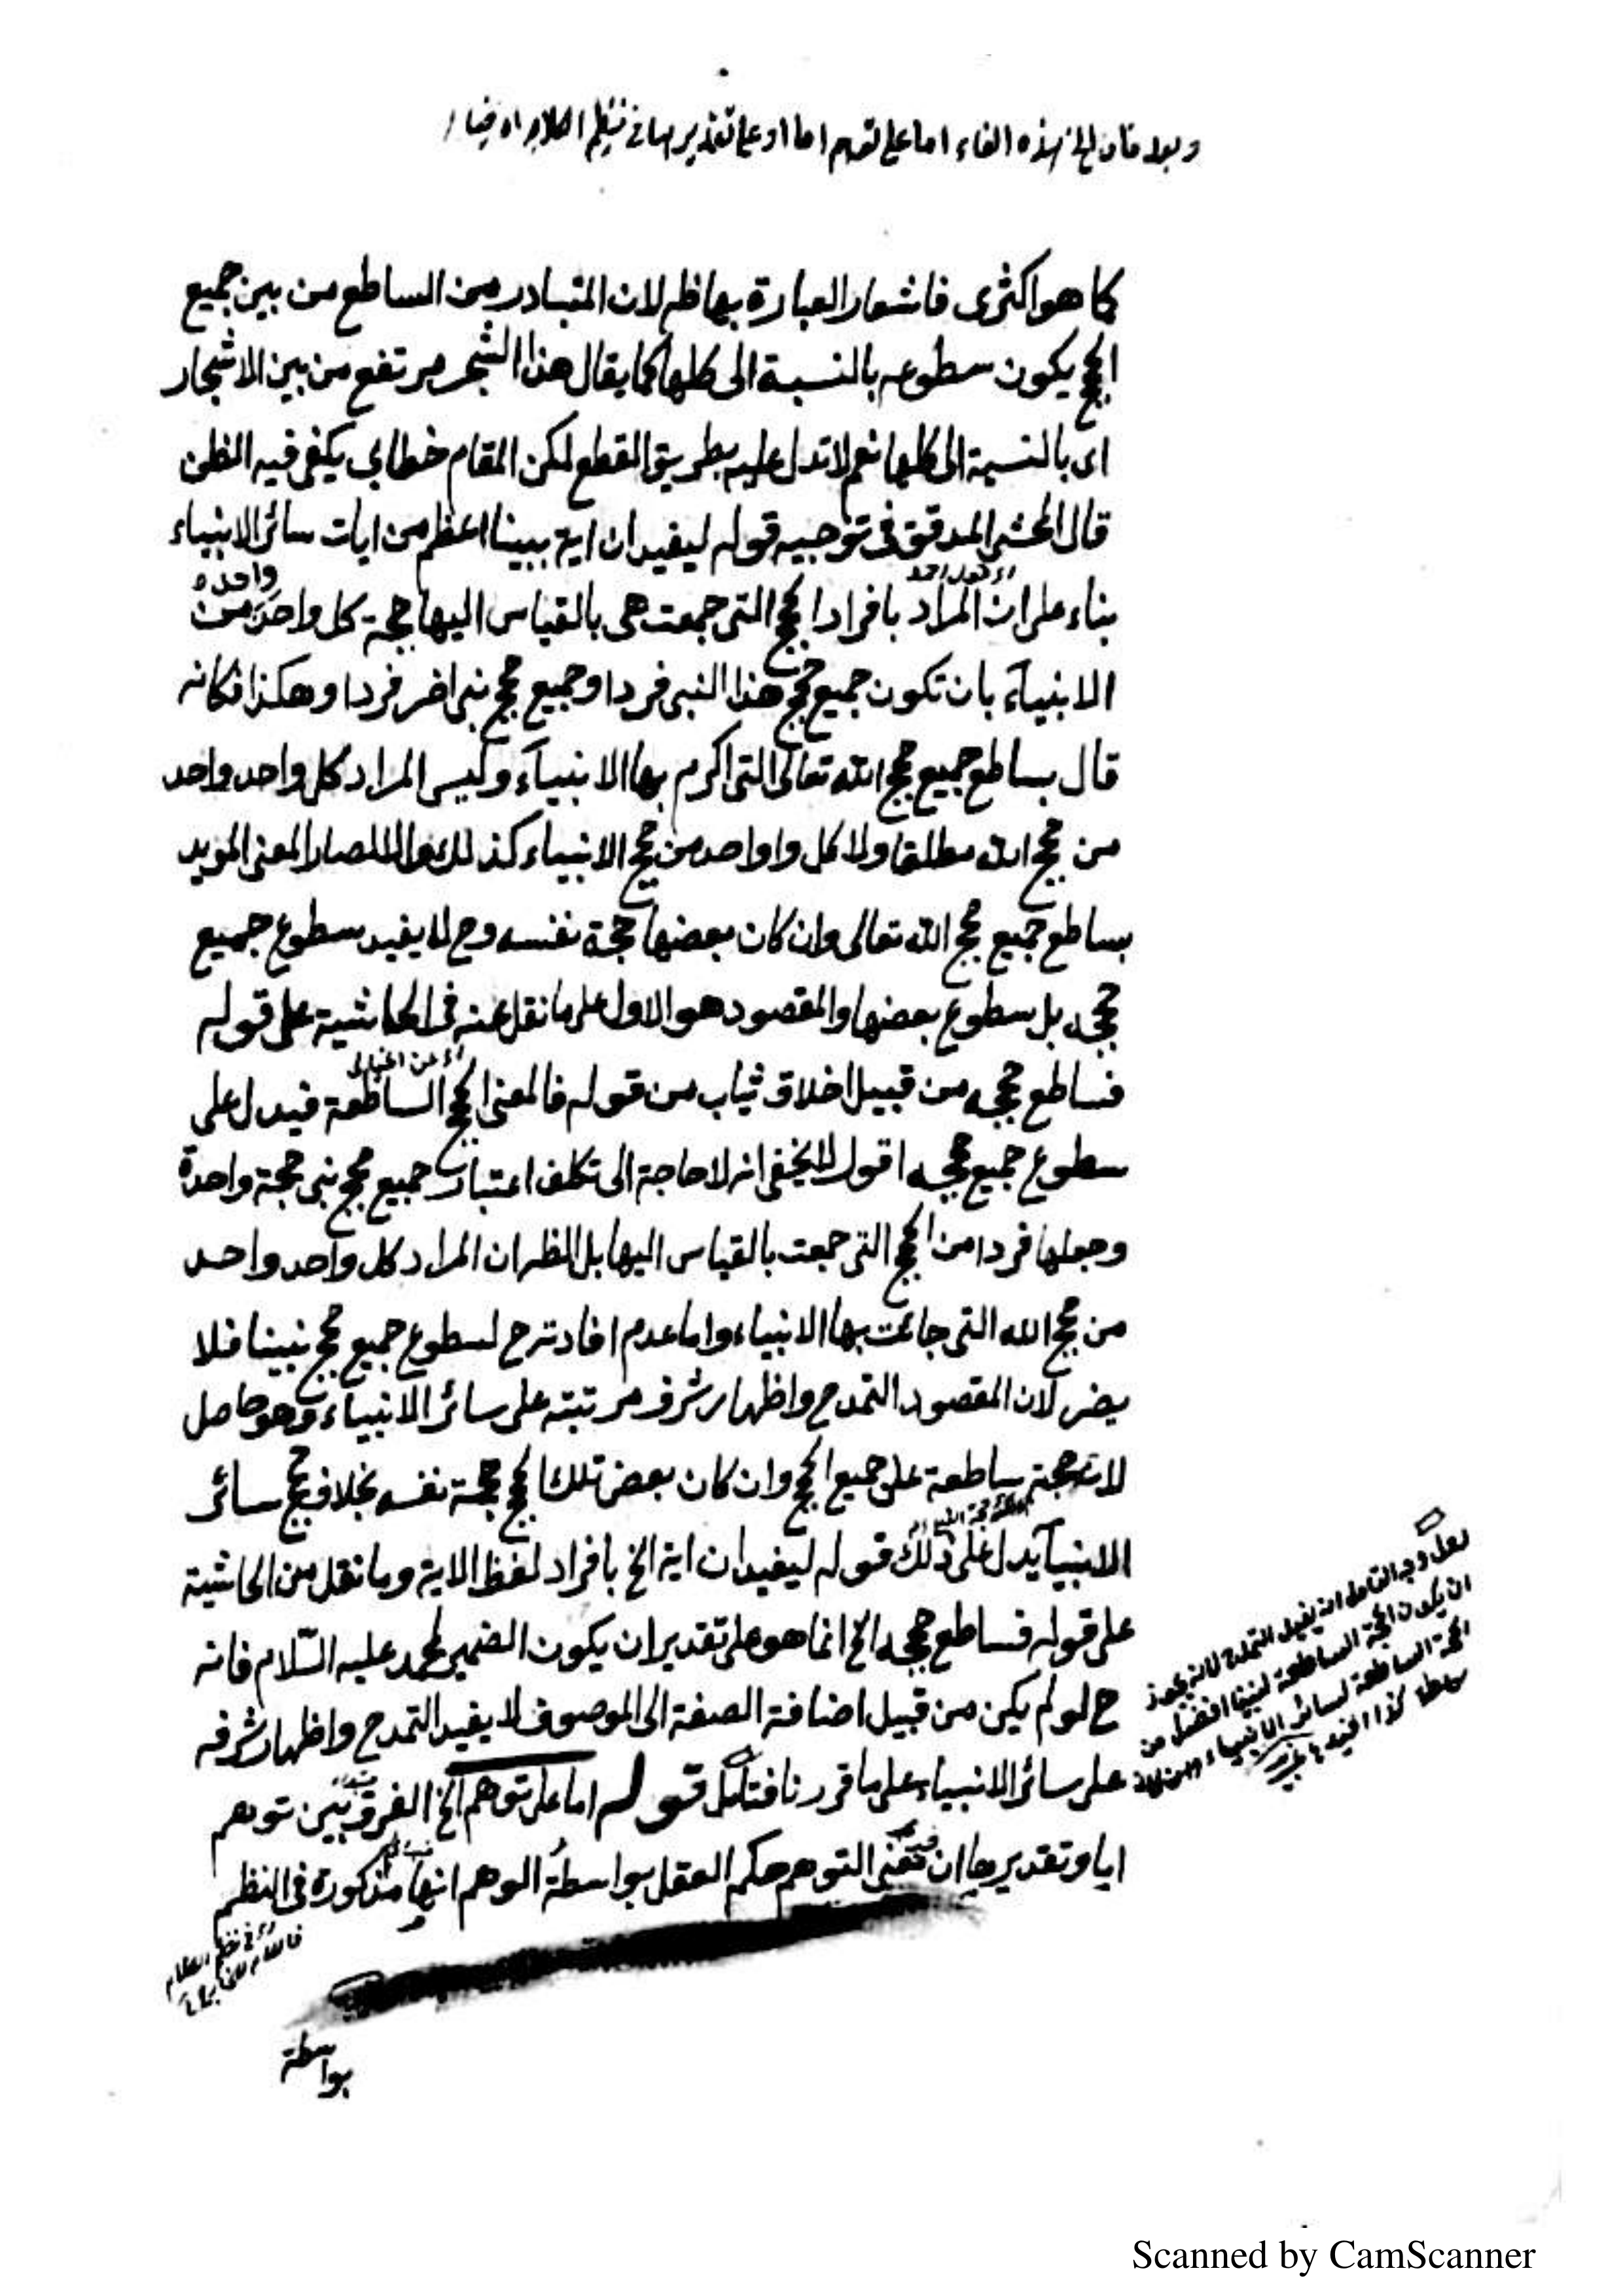 وبعد فان الخ هذه الفاء اما على توهم اما او على تقديرها في نظم الكلام اه خيالي
كما هو اكثرى فاشعار العبارة بها ظ لان المتبادر من الساطع من بين جميع
الحجج يكون سطوعه بالنسبة الى كلها كما يقال هذا الشجر مرتفع من بين الاشجار
اى بالنسبة الى كلها نعم لا تدل عليه بطريق القطع لكن المقام خطابي يكفى فيه الظن
قال المحشى المدقق فى توجيه قوله ليفيد ان اية نبينا اعظم من ايات سائر الانبياء
بناء على ان المراد بافراد الحجج التى جمعت هى بالقياس اليها حجة كل واحد من
واحده
الانبيآء بان تكون جميع حجج هذا النبى فردا وجميع حجج نبى اخر فردا وهكذا فكانه
قال بساطع جميع حجج الله تعالى التى اكرم بها الانبيآء وليس المراد كل واحد واحد
من حجج الله مطلقا ولا كل واحد من حجج الانبياء كذلك والا لصار المعنى المويد
بساطع جميع حجج الله تعالى وان كان بعضها حجة نفسه وح لا يفيد سطوع جميع
حججه بل سطوع بعضها والمقصود هو الاول على ما نقل عنه فى الحاشية على قوله
فساطع حججه من قبيل اخلاق ثياب من قوله فالمعنى الحجج الساطعة فيدل على
سطوع جميع حججه اقول لا يخفى انه لا حاجة الى تكلف اعتبار جميع حجج نبى حجة واحدة
وجعلها فردا من الحجج التى جمعت بالقياس اليها بل الظ ان المراد كل واحد واحد
من حجج الله التى جائت بها الانبياء واما عدم افادته ح لسطوع جميع حجج نبينا فلا
يضر لان المقصود التمدح واظهار شرف مرتبته على سائر الانبياء وهو حاصل
لان حجته ساطعة على جميع الحجج وان كان بعض تلك الحجج حجة نفسه بخلاف حجج سائر
الانبيآء يدل على ذلك قوله ليفيد ان اية الخ بافراد لفظ الاية وما نقل من الحاشية
على قوله فساطع حججه الخ انما هو على تقدير ان يكون الضمير لمحمد عليه السّلام فانه
ح لو لم يكن من قبيل اضافة الصفة الى الموصوف لا يفيد التمدح واظهار شرفه
على سائر الانبياء على ما قررنا فتامل قوله اما على توهم الخ الفرق بين توهم
اما وتقديرها ان معنى التوهم حكم العقل بواسطة الوهم انها مذكورة فى النظم
بواسطة
لعل وجه التامل انه يفيد التمدح لانه يجوز
ان يكون الحجة الساطعة لنبينا افضل من
الحجة الساطعة لسائر الانبياء
Scanned by CamScanner